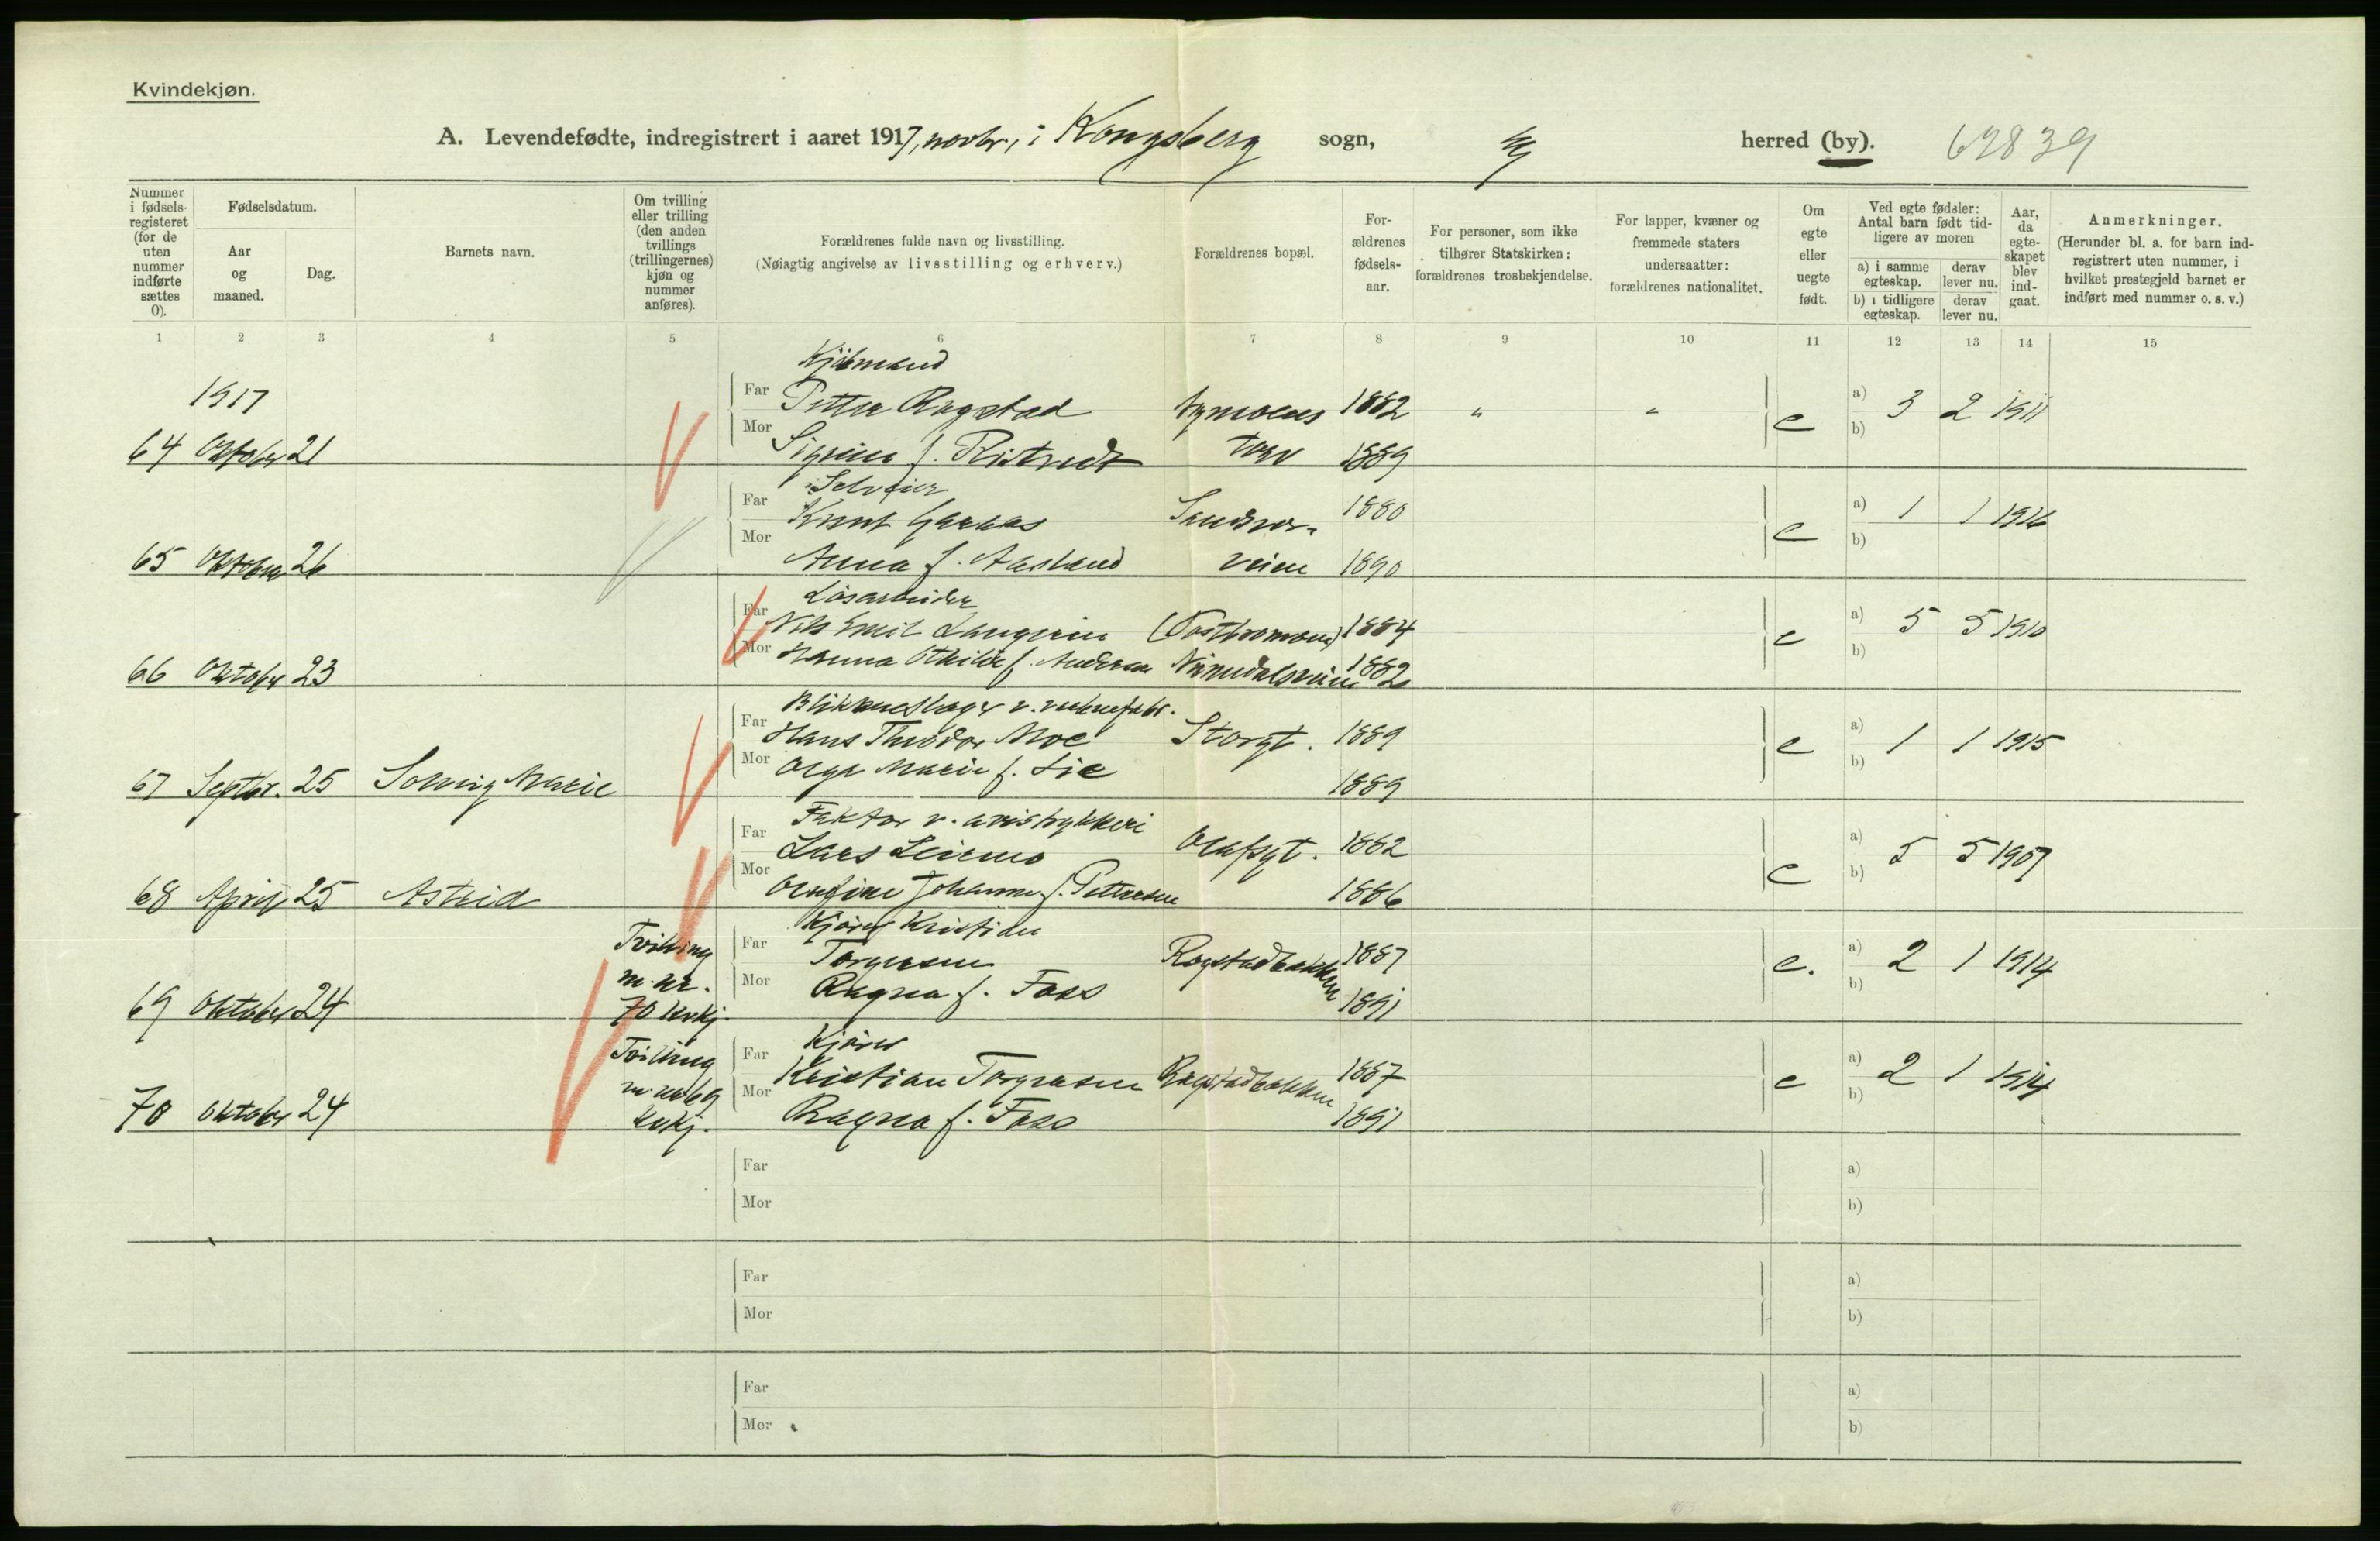 Kvindekjøn.
A. Levendefødte, indregistrert i aaret 1917, novbr., i Kongsberg sogn, herred (by). 62839
Nummer i fødsels-registeret (for de uten nummer indførte sættes 0).
Fødselsdatum.
Aar og maaned.
Dag.
Barnets navn.
Om tvilling eller trilling (den anden tvillings (trillingernes) kjøn og nummer anføres).
Forældrenes fulde navn og livsstilling.
(Nøiagtig angivelse av livsstilling og erhverv.)
Forældrenes bopæl.
For-ældrenes fødsels-aar.
For personer, som ikke tilhører Statskirken: forældrenes trosbekjendelse.
For lapper, kvæner og fremmede staters undersaatter: forældrenes nationalitet.
Om egte eller uegte født.
Ved egte fødsler: Antal barn født tid-ligere av moren
a) i samme egteskap.
derav lever nu.
b) i tidligere egteskap.
derav lever nu.
Aar, da egte-skapet blev ind-gaat.
Anmerkninger.
(Herunder bl. a. for barn ind-registrert uten nummer, i hvilket prestegjeld barnet er indført med nummer o. s. v.)
1 2 3 4 5 6 7 8 9 10 11 12 13 14 15
1917
Kjøbmand
Far Petter Rogstad 1882 " " e a) 3 2 1911
64 Oktober 21 Mor f. 1889 b)
Selveier
Far Knut 1880 e a) 1 1 1916
65 Oktober 26 Mor Anna f. Aasland veien 1890 b)
Løsarbeider
Far Nils Emil 1884 e a) 5 5 1910
66 Oktober 23 Mor Hanna Othilde f. Andersen Numedalsveien 1882 b)
Blikkenslager v. vaabenfabr.
Far Hans Theodor Moe Storgt. 1889 e a) 1 1 1915
67 Septbr. 25 Solveig Marie Mor Olga Marie f. Lie 1889 b)
Faktor v. avistrykkeri
Far Lars Olafsgt. 1882 e a) 5 5 1907
68 April 25 Astrid Mor Olufine Johanne f. Pettersen 1886 b)
Tvilling Kjører Kristian
m. nr. Far Torgersen Rogstadbakken 1887 e. a) 2 1 1914
69 Oktober 24 70 kvkj. Mor Ragna f. Foss 1891 b)
Tvilling Kjører
m. nr 69 Far Kristian Torgersen Rogstadbakken 1887 e a) 2 1 1914
70 Oktober 24 kvkj. Mor Ragna f. Foss 1891 b)
Far a)
Mor b)
Far a)
Mor b)
Far a)
Mor b)